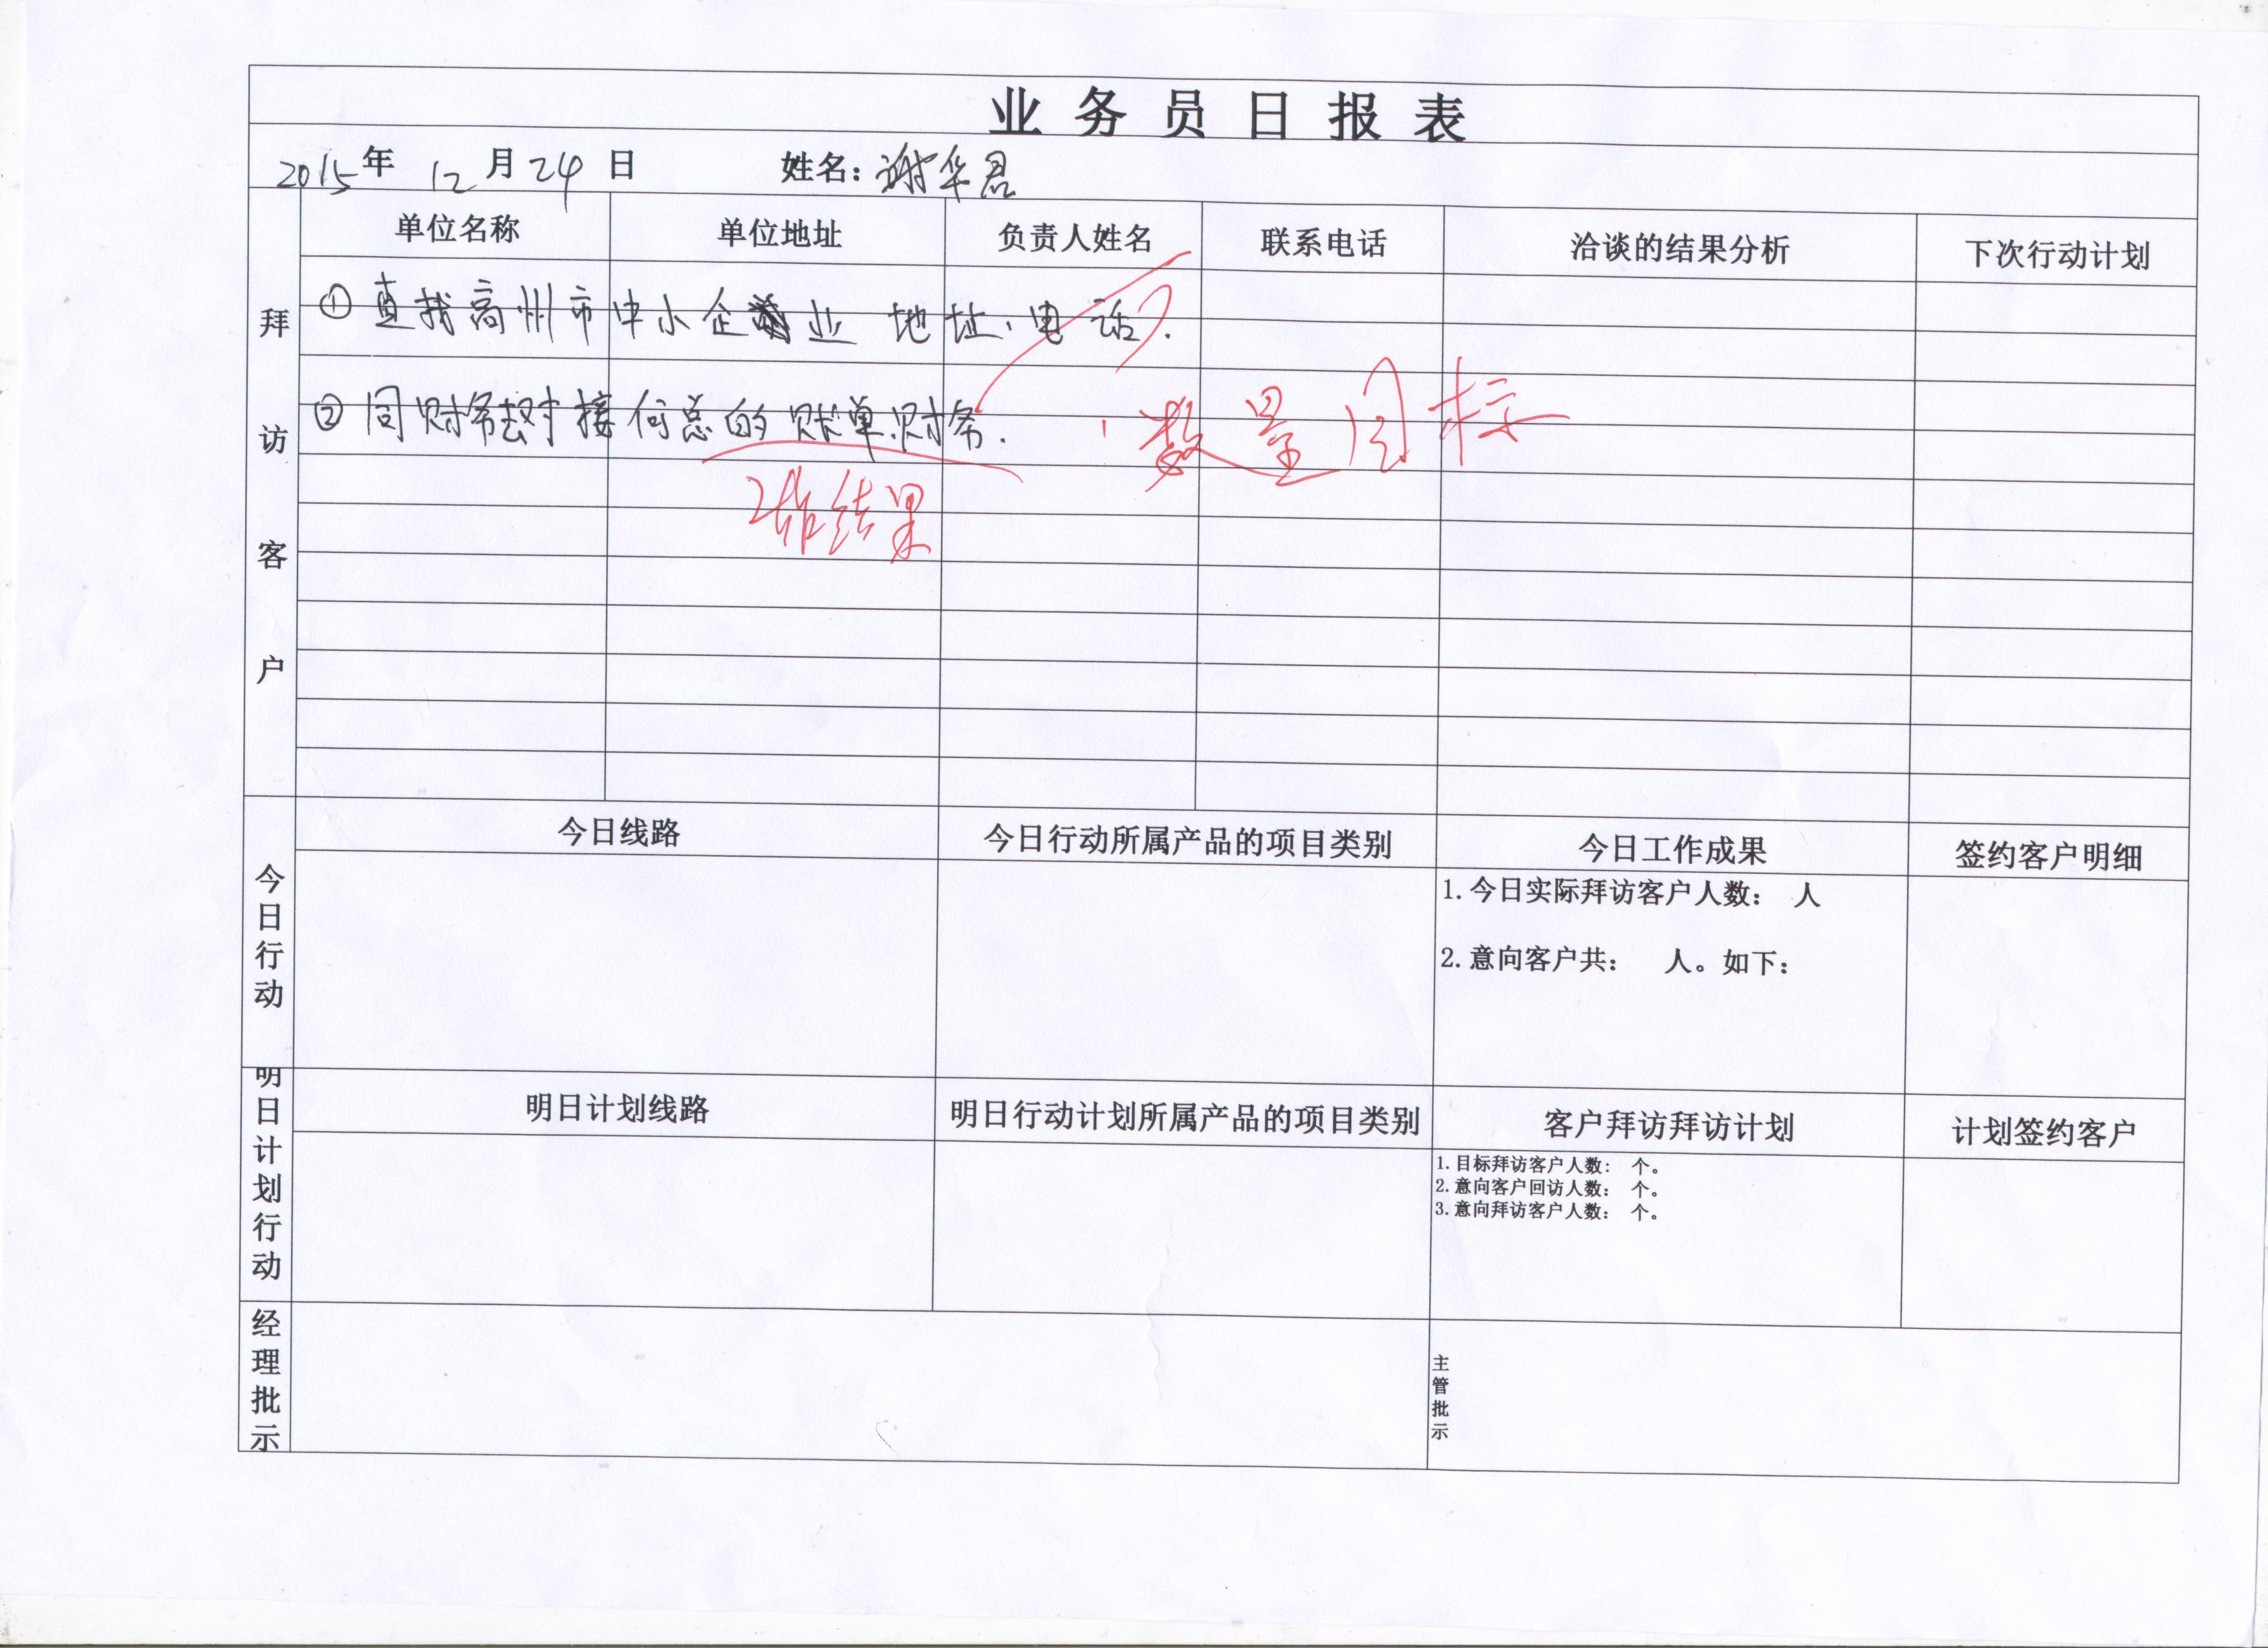 业务员日报表
2015年 12月24日 姓名：谢华君
拜访客户
单位名称 单位地址 负责人姓名 联系电话 洽谈的结果分析 下次行动计划
① 查找高州市中小企业 地址、电话.
② 同财务对接何总的账单财务.
数量目标
结果
今日行动
今日线路 今日行动所属产品的项目类别 今日工作成果 签约客户明细
1.今日实际拜访客户人数： 人
2.意向客户共： 人。如下：
明日计划行动
明日计划线路 明日行动计划所属产品的项目类别 客户拜访拜访计划 计划签约客户
1.目标拜访客户人数： 个。
2.意向客户回访人数： 个。
3.意向拜访客户人数： 个。
经理批示
主管批示